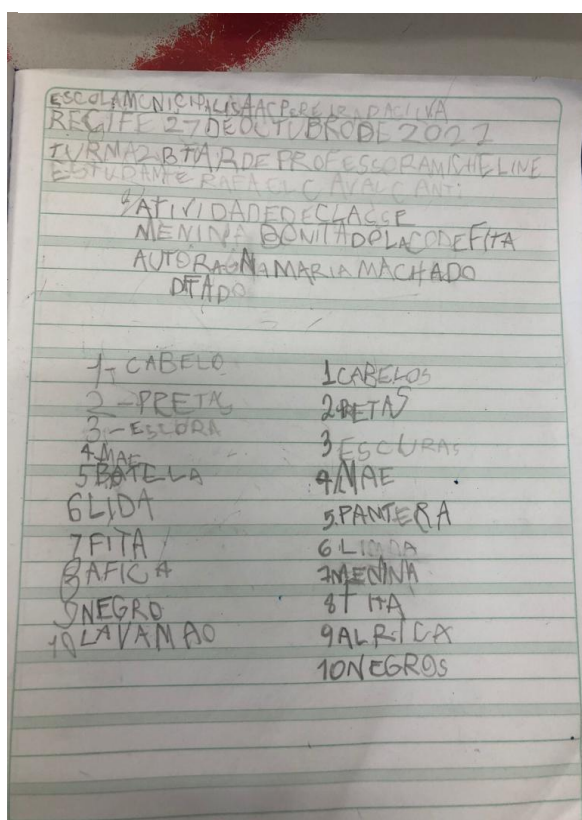 ESCOLAMUNICIPALISAACPEREIRADASILVA
RECIFE 27 DEOUTUBRODE 2021
TURMA2BTARDEPROFESSORAMICHELINE
ESTUDANTE RAFAELCAVALCANTI
ATIVIDADEDECLASSE
MENINA BONITADOLACODEFITA
AUTORAANAMARIAMACHADO
DITADO
1- CABELO
2-PRETAS
3-ESCORA
4MAE
5BATELLA
6LIDA
7FITA
8AFICA
9NEGRO
10LAVAMAO
1CABELOS
2PETAS
3ESCURAS
4MAE
5.PANTERA
6LINDA
7MENINA
8FITA
9ALRICA
10NEGROS